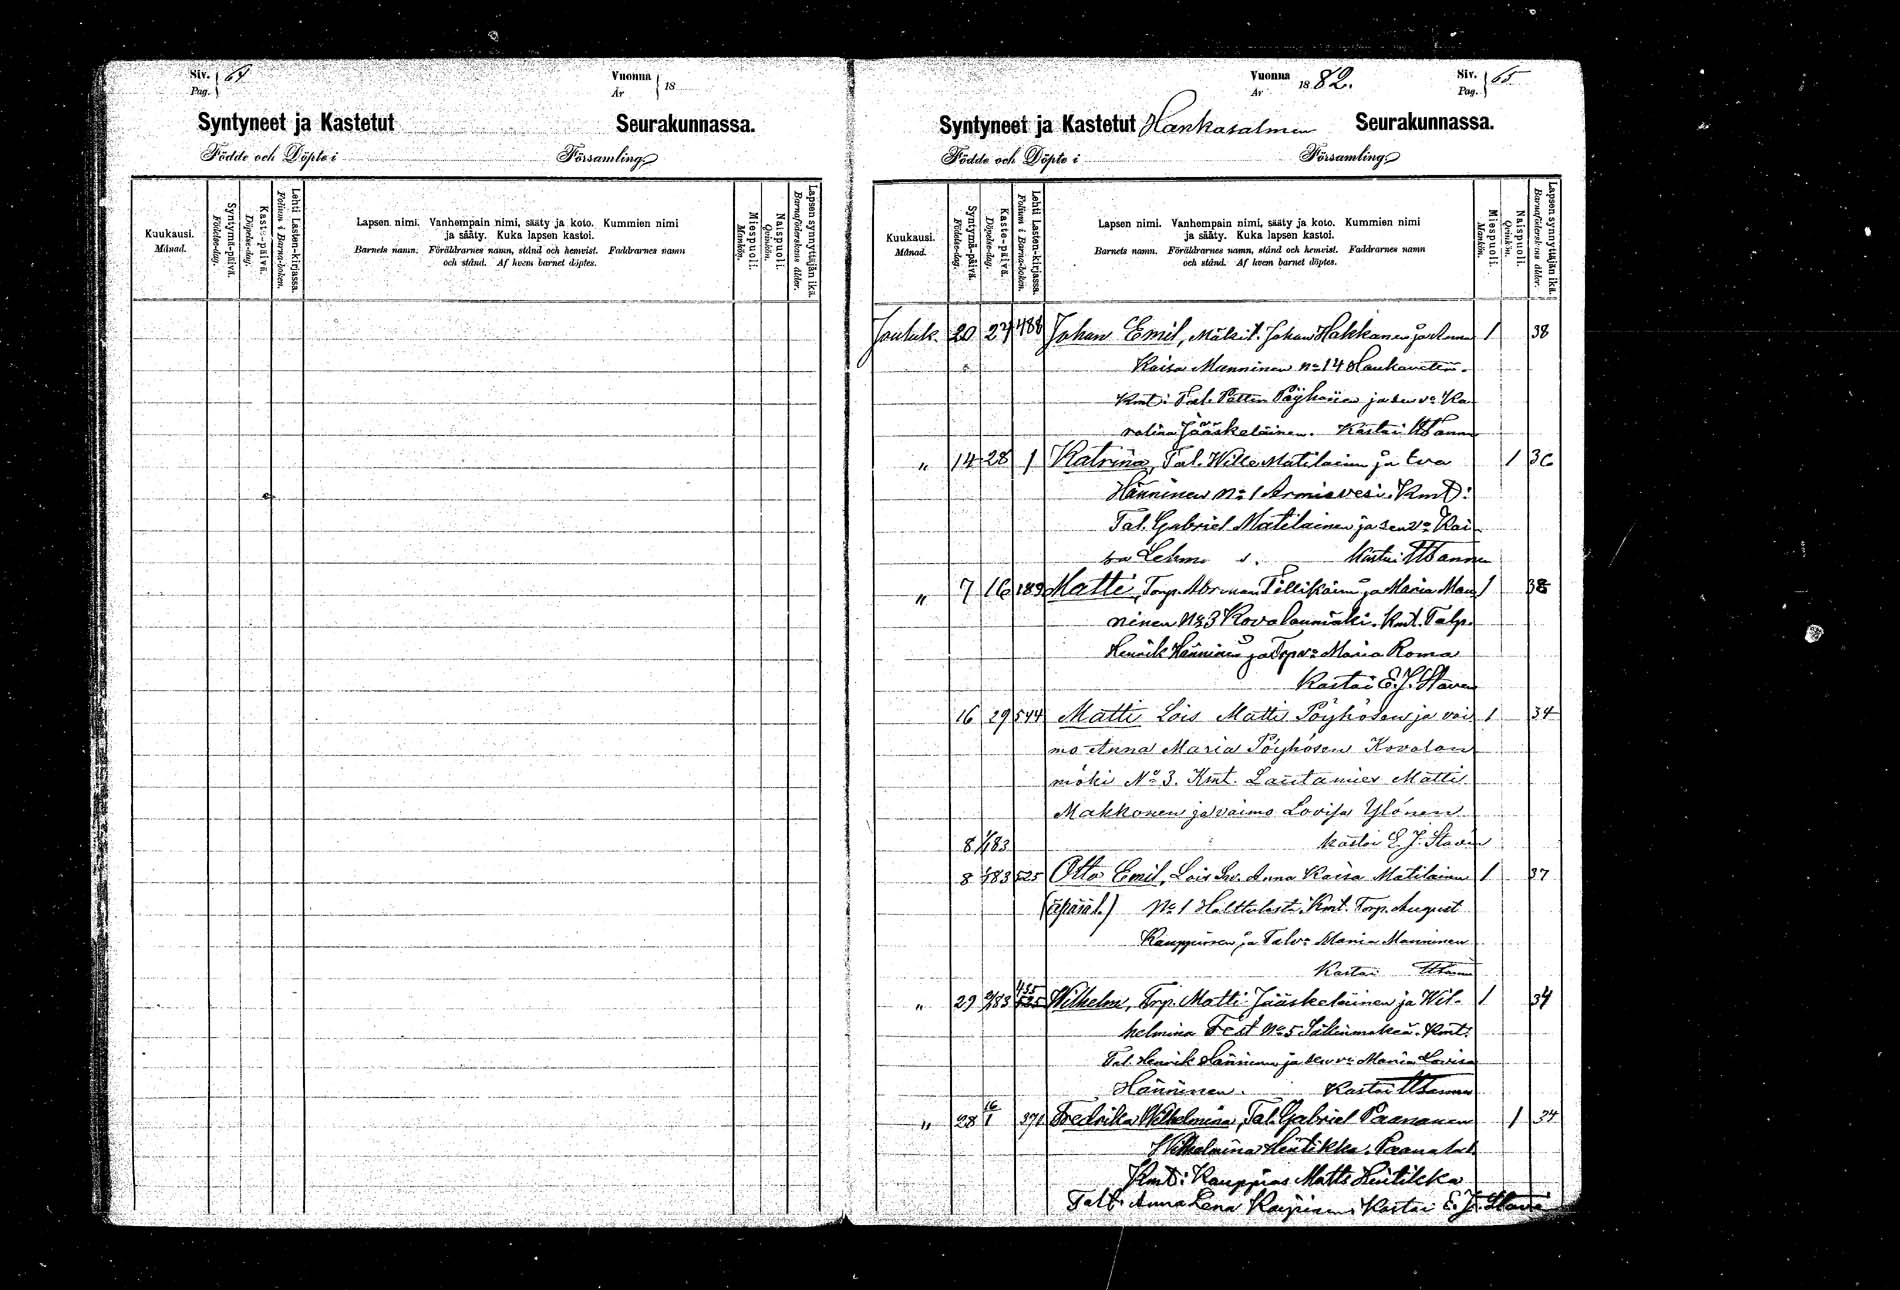 Siv. Pag. 64
Vuonna År 18
Syntyneet ja Kastetut Seurakunnassa.
Födde och Döpte i Församling.
Kuukausi. Månad.
Syntymä-päivä. Födelse-dag.
Kaste-päivä. Döpelse-dag.
Lehti Lasten-kirjassa. Folium i Barna-boken.
Lapsen nimi. Vanhempain nimi, sääty ja koto. Kummien nimi
ja sääty. Kuka lapsen kastoi.
Barnets namn. Föräldrarnes namn, stånd och hemvist. Faddrarnes namn
och stånd. Af hvem barnet döptes.
Miespuoli. Mankön.
Naispuoli. Qvinkön.
Lapsen synnyttäjän ikä. Barnaföderskans ålder.
Vuonna År 1882.
Siv. Pag. 65
Syntyneet ja Kastetut Hankasalmen Seurakunnassa.
Födde och Döpte i Församling.
Kuukausi. Månad.
Syntymä-päivä. Födelse-dag.
Kaste-päivä. Döpelse-dag.
Lehti Lasten-kirjassa. Folium i Barna-boken.
Lapsen nimi. Vanhempain nimi, sääty ja koto. Kummien nimi
ja sääty. Kuka lapsen kastoi.
Barnets namn. Föräldrarnes namn, stånd och hemvist. Faddrarnes namn
och stånd. Af hvem barnet döptes.
Miespuoli. Mankön.
Naispuoli. Qvinkön.
Lapsen synnyttäjän ikä. Barnaföderskans ålder.
Jouluk. 20 27 488 Johan Emil, Mäkit. Johan Hakkanen ja Anna 1 38
Kaisa Manninen No 14
Kmt: Tal. Petter Pöyhönen ja sen vo Ka
rolina Jääskeläinen. Kastoi
" 14 28 1 Katrina, Tal. Wille Matilainen ja Eva 1 36
Hänninen No 1 Armisvesi. Kmt:
Tal. Gabriel Matilainen ja sen vo Kai
sa Kastoi
" 7 16 189 Matti, Torp. Abraham Tillikain ja Maria Man 1 38
ninen No 3 Kovalanmäki. Kmt. Talp.
Henrik Hänninen ja Trpvo Maria Roma
Kastoi E. J. Staven
16 29 544 Matti Lois Matti Pöyhösen ja vai 1 34
mo Anna Maria Pöyhösen Kovalan
mäki No 3. Kmt. Lautamies Matti
Makkonen ja vaimo Lovisa Ylönen
8 1/1 83 kastoi E. J. Staven
8 1/1 83 525 Otto Emil, Lois Anna Kaisa Matilainen 1 37
(äpärät.) No 1 Kmt. Torp. August
Kauppinen ja Talvo Maria Manninen
Kastoi
" 29 83 435 525 Wilhelm, Trp. Matti Jääskeläinen ja Wil- 1 34
helmina Fest No 5 Kmt:
Tal. Henrik Hänninen ja sen vo Maria Lovisa
Hänninen. Kastoi
" 28 16/1 371 Fredrika Wilhelmina, Tal. Gabriel Paananen 1 34
Wilhelmina Hintikka.
Kmt: Kauppias Matti Hintikka
Anna Lena Kastoi E. J. Staven